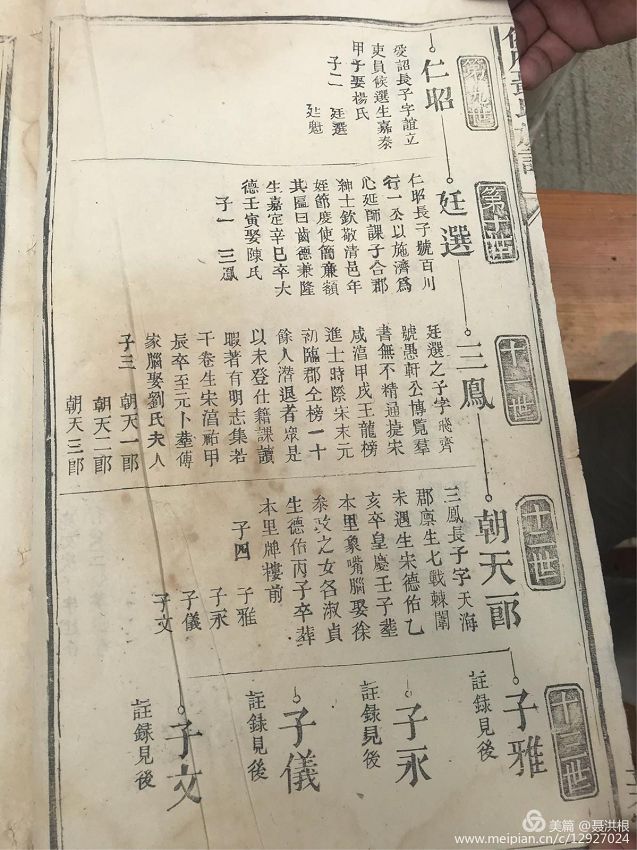 第九世
仁昭
爰詔長子字誼立
吏員候選生嘉泰
甲子娶楊氏
子二　廷選
廷魁
第十世
廷選
仁昭長子號百川
行一公以施濟爲
心延師課子合郡
紳士欽敬清邑年
姪節慶使簡廉額
其匾曰齒德兼隆
生嘉定辛巳卒大
德壬寅娶陳氏
子一　三鳳
十一世
三鳳
廷選之子字飛齊
號愚軒公博覧羣
書無不精通捷宋
咸湻甲戌王龍榜
進士時際宋末元
初臨郡仝榜一十
餘人潛退者衆是
以未登仕籍課讀
暇著有明志集若
干卷生宋湻祐甲
辰卒至元卜塟傅
家腦娶劉氏夫人
子三　朝天一郎
朝天二郎
朝天三郎
十二世
朝天一郎
三鳳長子字天海
郡廪生七戰棘闈
未遇生宋德佑乙
亥卒皇慶壬子塟
本里象嘴腦娶徐
叅政之女名淑貞
生德佑丙子卒葬
本里牌樓前
子四　子雅
子永
子儀
子文
十三世
子雅
註録見後
子永
註録見後
子儀
註録見後
子文
註録見後
美篇 @聂洪根
www.meipian.cn/c/12927024